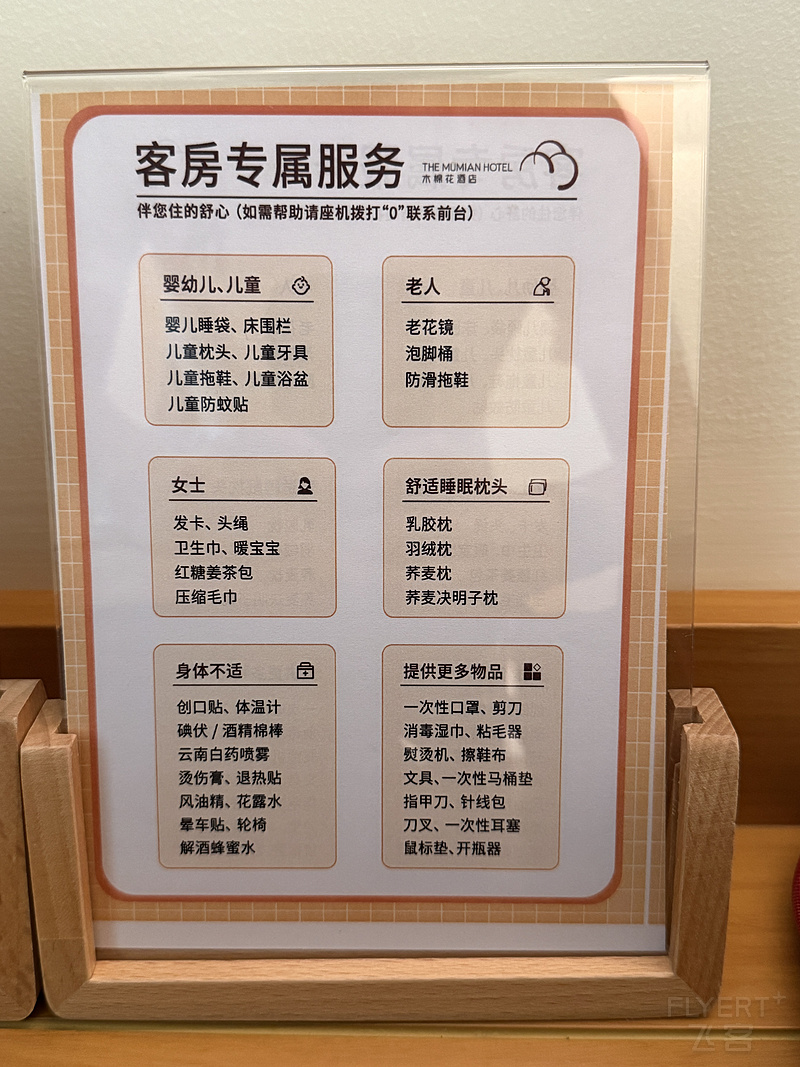 客房专属服务
THE MUMIAN HOTEL
木棉花酒店
伴您住的舒心（如需帮助请座机拨打“0”联系前台）
婴幼儿、儿童
婴儿睡袋、床围栏
儿童枕头、儿童牙具
儿童拖鞋、儿童浴盆
儿童防蚊贴
老人
老花镜
泡脚桶
防滑拖鞋
女士
发卡、头绳
卫生巾、暖宝宝
红糖姜茶包
压缩毛巾
舒适睡眠枕头
乳胶枕
羽绒枕
荞麦枕
荞麦决明子枕
身体不适
创口贴、体温计
碘伏 / 酒精棉棒
云南白药喷雾
烫伤膏、退热贴
风油精、花露水
晕车贴、轮椅
解酒蜂蜜水
提供更多物品
一次性口罩、剪刀
消毒湿巾、粘毛器
熨烫机、擦鞋布
文具、一次性马桶垫
指甲刀、针线包
刀叉、一次性耳塞
鼠标垫、开瓶器
FLYERT+
飞客